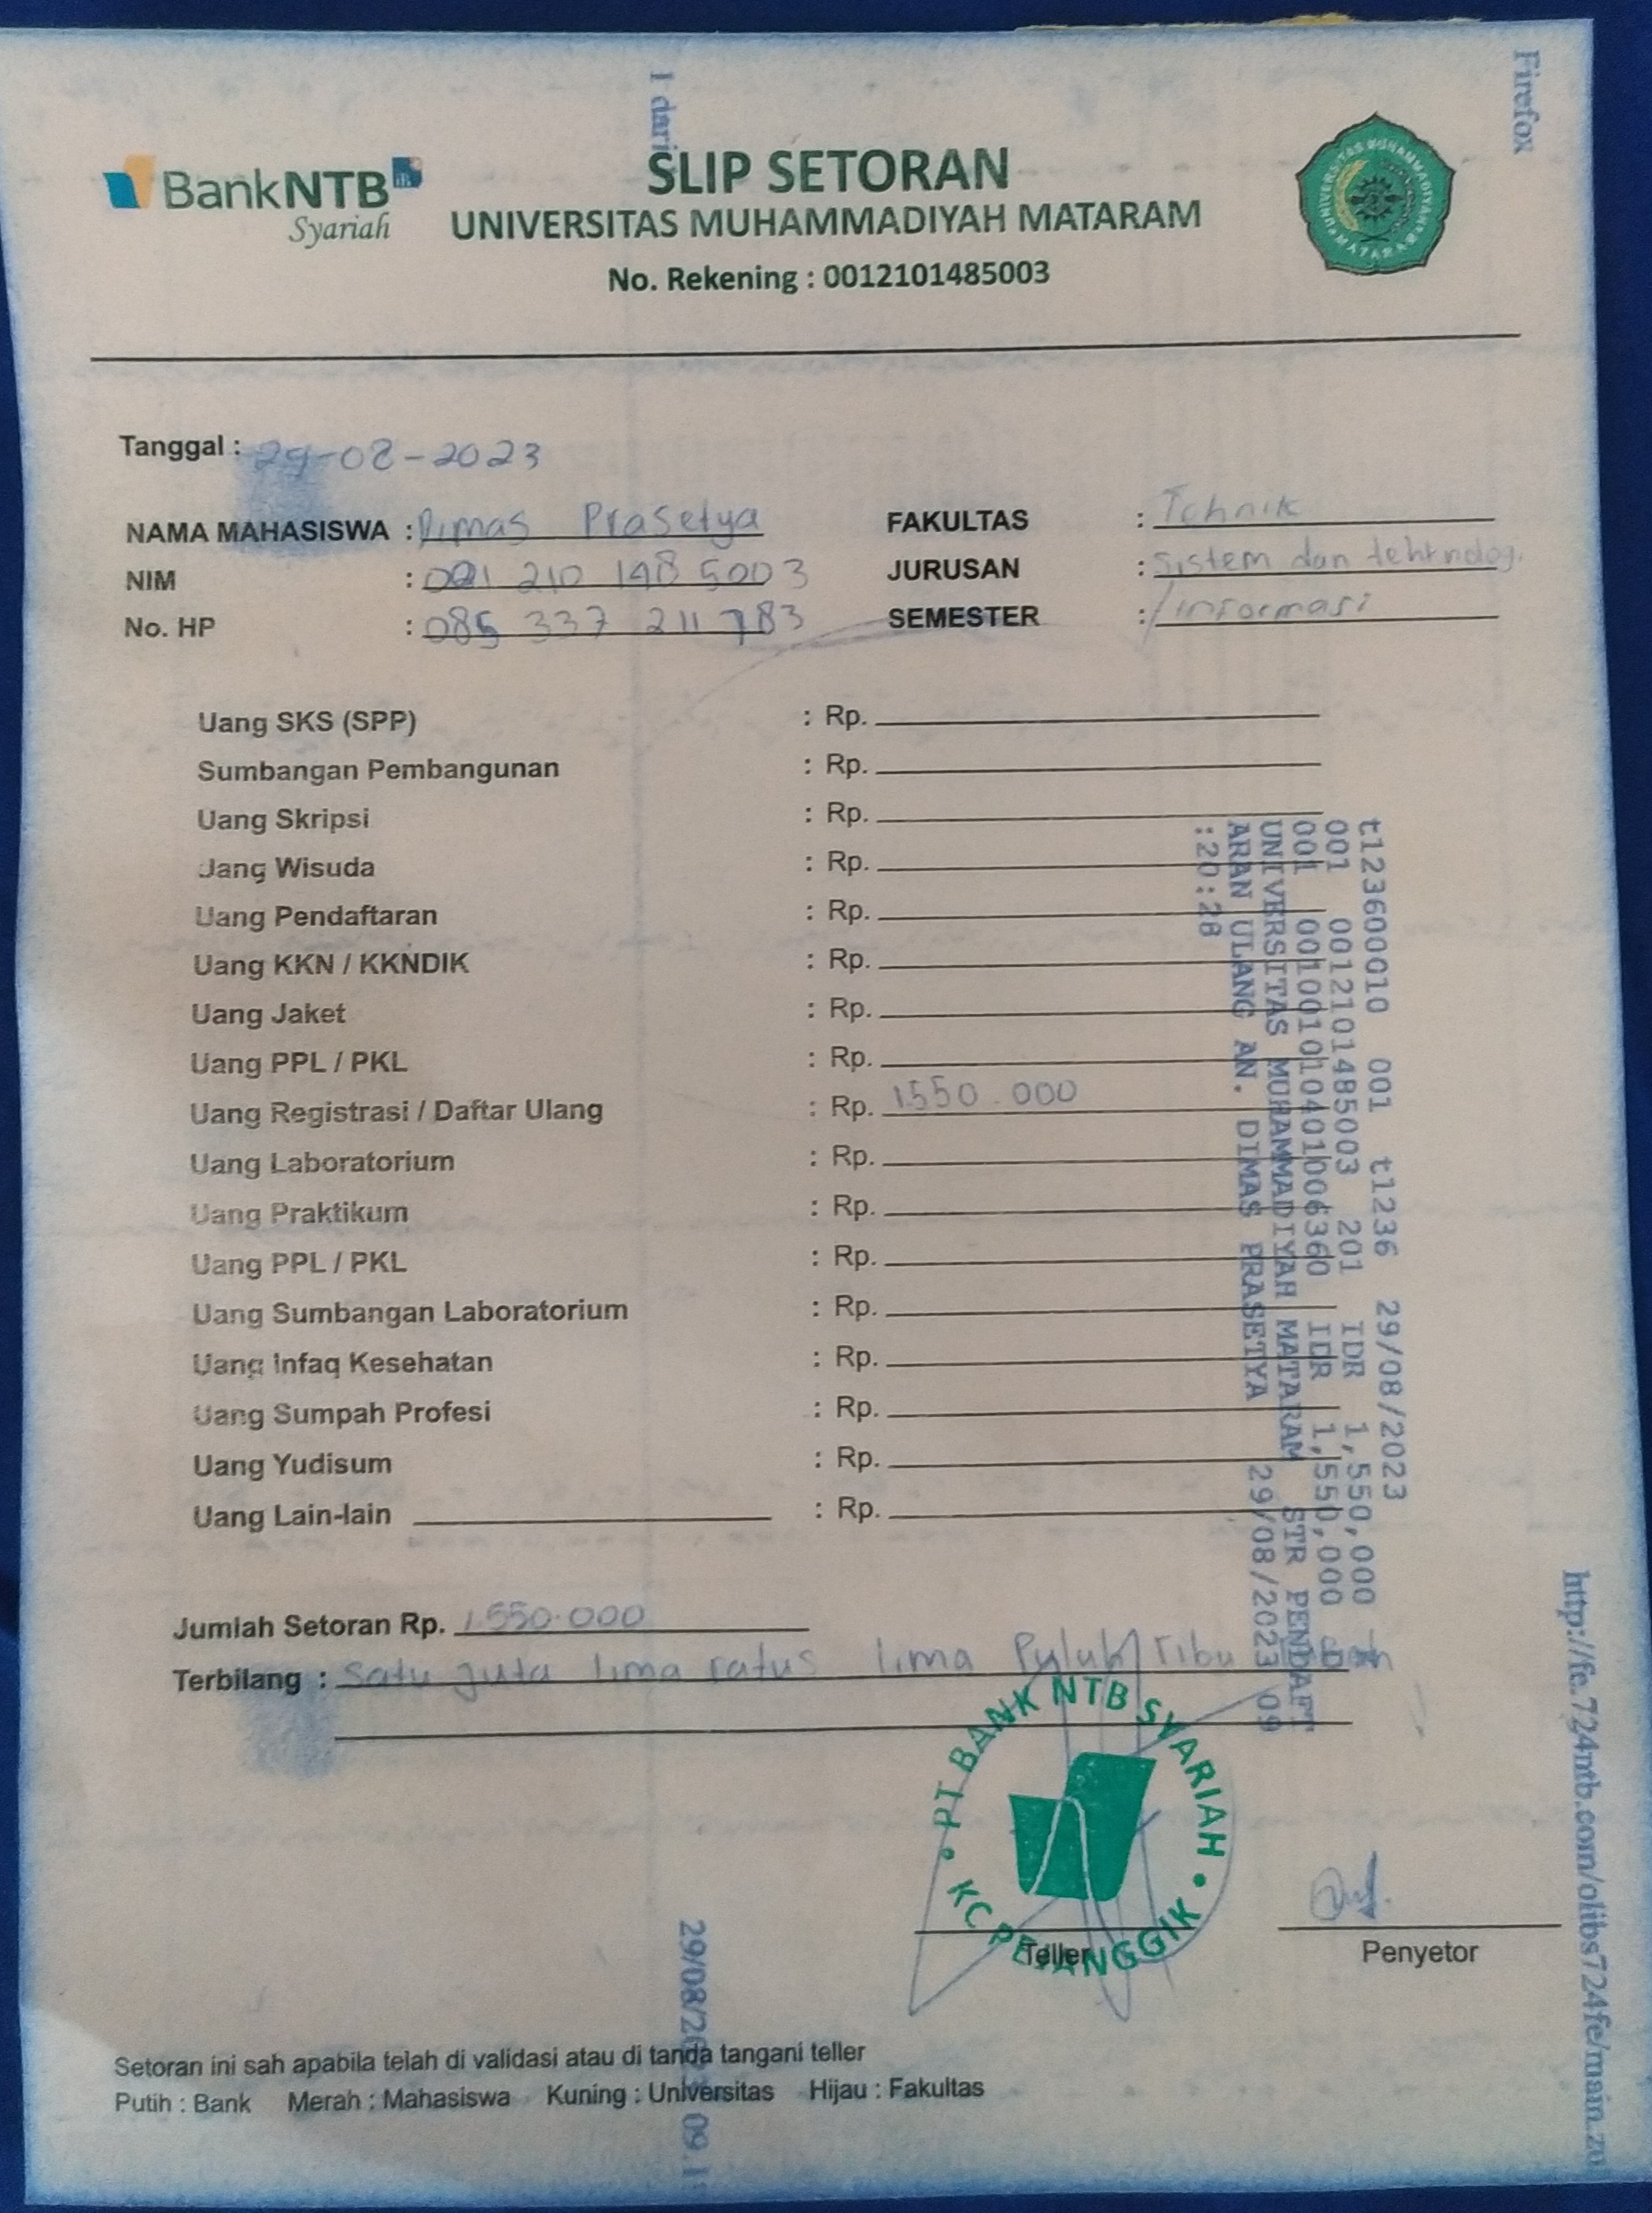 Firefox
1 dari
BankNTB
Syariah
SLIP SETORAN
UNIVERSITAS MUHAMMADIYAH MATARAM
No. Rekening : 0012101485003
UNIVERSITAS MUHAMMADIYAH MATARAM
Tanggal : 29-08-2023
NAMA MAHASISWA : Dimas Prasetya
FAKULTAS : Tehnik
NIM : 001 210 148 5003
JURUSAN : Sistem dan tehknologi
No. HP : 085 337 211 783
SEMESTER : / informasi
Uang SKS (SPP) : Rp.
Sumbangan Pembangunan : Rp.
Uang Skripsi : Rp.
Uang Wisuda : Rp.
Uang Pendaftaran : Rp.
Uang KKN / KKNDIK : Rp.
Uang Jaket : Rp.
Uang PPL / PKL : Rp.
Uang Registrasi / Daftar Ulang : Rp. 1.550.000
Uang Laboratorium : Rp.
Uang Praktikum : Rp.
Uang PPL / PKL : Rp.
Uang Sumbangan Laboratorium : Rp.
Uang Infaq Kesehatan : Rp.
Uang Sumpah Profesi : Rp.
Uang Yudisum : Rp.
Uang Lain-lain : Rp.
t123600010 001 t1236 29/08/2023
001 0012101485003 201 IDR 1,550,000
001 001001010401006360 IDR 1,550,000
UNIVERSITAS MUHAMMADIYAH MATARAM STR PENDAFT
ARAN ULANG AN. DIMAS PRASETYA 29/08/2023 09
:20:28
Jumlah Setoran Rp. 1.550.000
Terbilang : Satu juta lima ratus lima Puluh ribu
PT BANK NTB SYARIAH
KC PEJANGGIK
Teller
Penyetor
Setoran ini sah apabila telah di validasi atau di tanda tangani teller
Putih : Bank Merah : Mahasiswa Kuning : Universitas Hijau : Fakultas
http://fe.724ntb.com/olibs724fe/main.zu